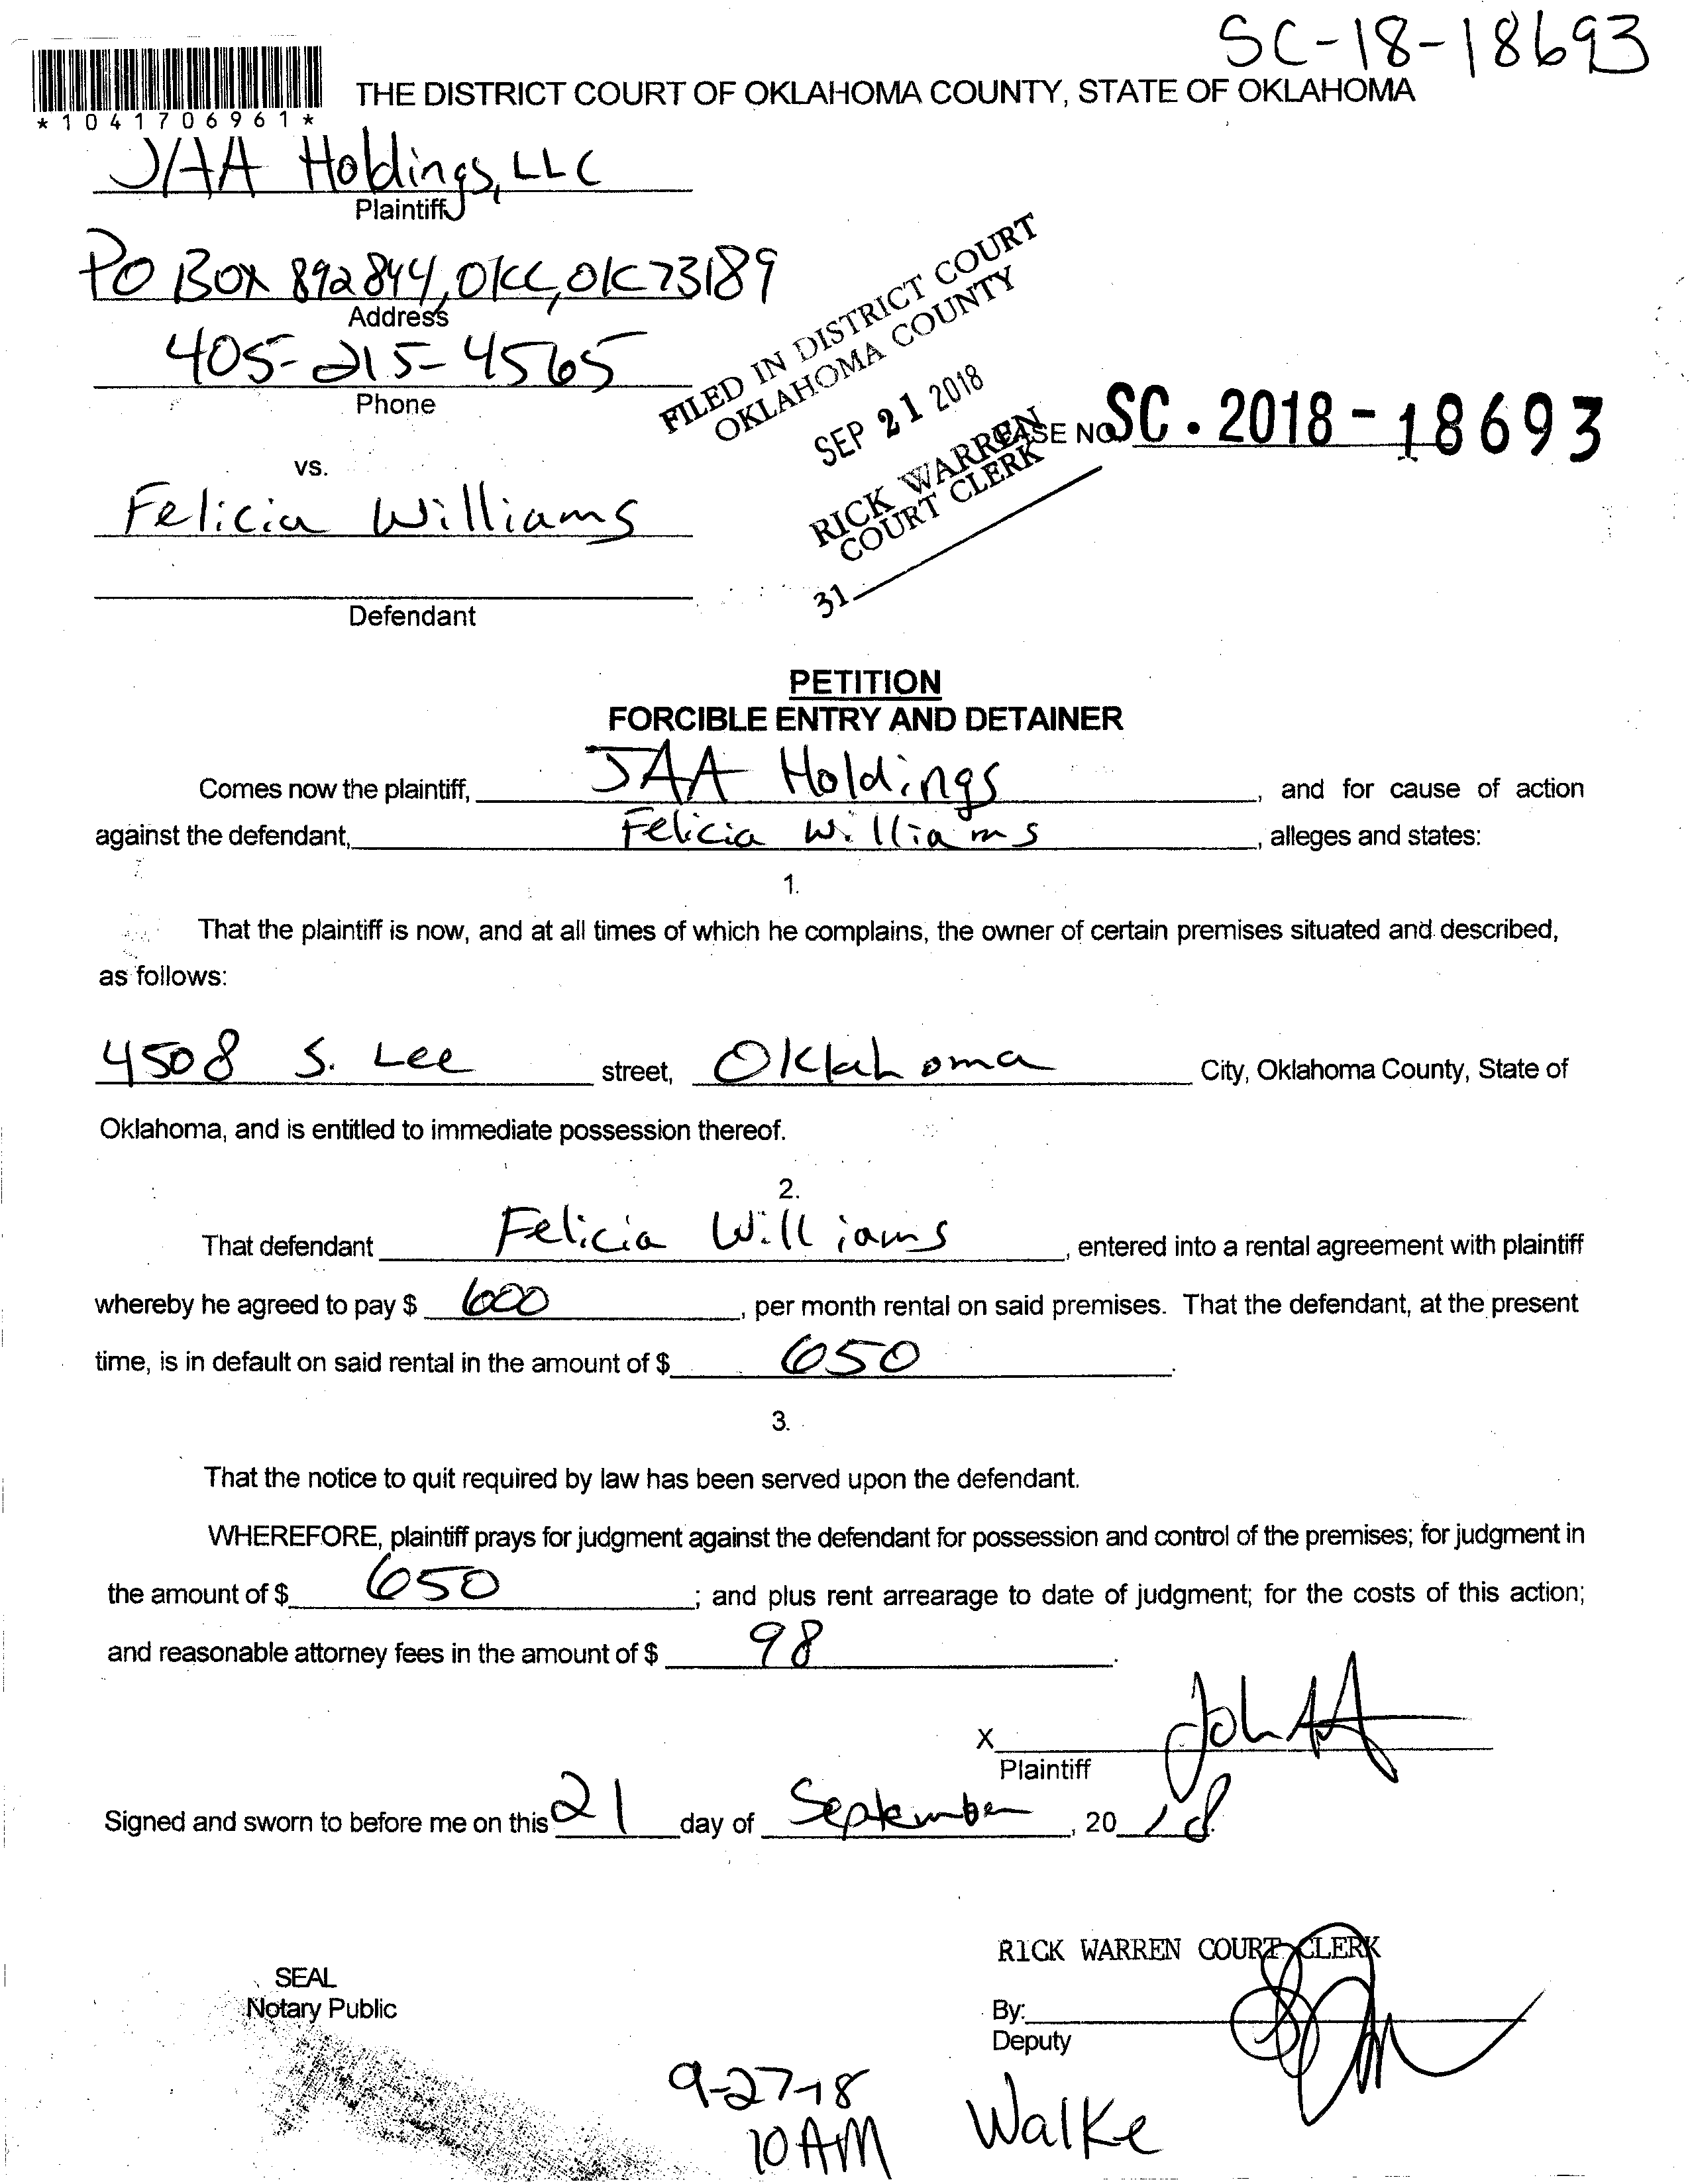 SC-18-18693
THE DISTRICT COURT OF OKLAHOMA COUNTY, STATE OF OKLAHOMA
*1041706961*
JAA Holdings, LLC
Plaintiff
PO Box 892844, OKC, OK 73189
Address
405-215-4565
Phone
FILED IN DISTRICT COURT
OKLAHOMA COUNTY
SEP 21 2018
RICK WARREN
COURT CLERK
31
CASE NO. SC-2018-18693
vs.
Felicia Williams
Defendant
PETITION
FORCIBLE ENTRY AND DETAINER
Comes now the plaintiff, JAA Holdings, and for cause of action
against the defendant, Felicia Williams, alleges and states:
1.
That the plaintiff is now, and at all times of which he complains, the owner of certain premises situated and described,
as follows:
4508 S. Lee street, Oklahoma City, Oklahoma County, State of
Oklahoma, and is entitled to immediate possession thereof.
2.
That defendant Felicia Williams, entered into a rental agreement with plaintiff
whereby he agreed to pay $ 600, per month rental on said premises. That the defendant, at the present
time, is in default on said rental in the amount of $ 650.
3.
That the notice to quit required by law has been served upon the defendant.
WHEREFORE, plaintiff prays for judgment against the defendant for possession and control of the premises; for judgment in
the amount of $ 650; and plus rent arrearage to date of judgment; for the costs of this action;
and reasonable attorney fees in the amount of $ 98.
X
Plaintiff
Signed and sworn to before me on this 21 day of September, 20 18.
RICK WARREN COURT CLERK
SEAL
Notary Public
By:
Deputy
9-27-18
10 AM
Walke